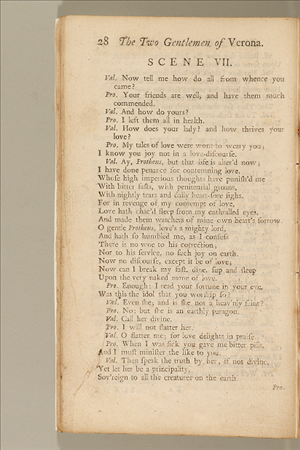 28 The Two Gentlemen of Verona.
SCENE VII.
Val. Now tell me how do all from whence you
came?
Pro. Your friends are well, and have them much
commended.
Val. And how do yours?
Pro. I left them all in health.
Val. How does your lady? and how thrives your
love?
Pro. My tales of love were wont to weary you;
I know you joy not in a love-discourse.
Val. Ay, Protheus, but that life is alter'd now;
I have done penance for contemning love,
Whose high imperious thoughts have punish'd me
With bitter fasts, with penitential groans,
With nightly tears and daily heart-sore sighs.
For in revenge of my contempt of love,
Love hath chac'd sleep from my enthralled eyes,
And made them watchers of mine own heart's sorrow.
O gentle Protheus, love's a mighty lord,
And hath so humbled me, as I confess
There is no woe to his correction,
Nor to his service, no such joy on earth.
Now no discourse, except it be of love;
Now can I break my fast, dine, sup and sleep
Upon the very naked name of love.
Pro. Enough: I read your fortune in your eye.
Was this the idol that you worship so?
Val. Even she; and is she not a heav'nly saint?
Pro. No; but she is an earthly paragon.
Val. Call her divine.
Pro. I will not flatter her.
Val. O flatter me; for love delights in praise.
Pro. When I was sick you gave me bitter pills,
And I must minister the like to you.
Val. Then speak the truth by her; if not divine,
Yet let her be a principality,
Sov'reign to all the creatures on the earth.
Pro.